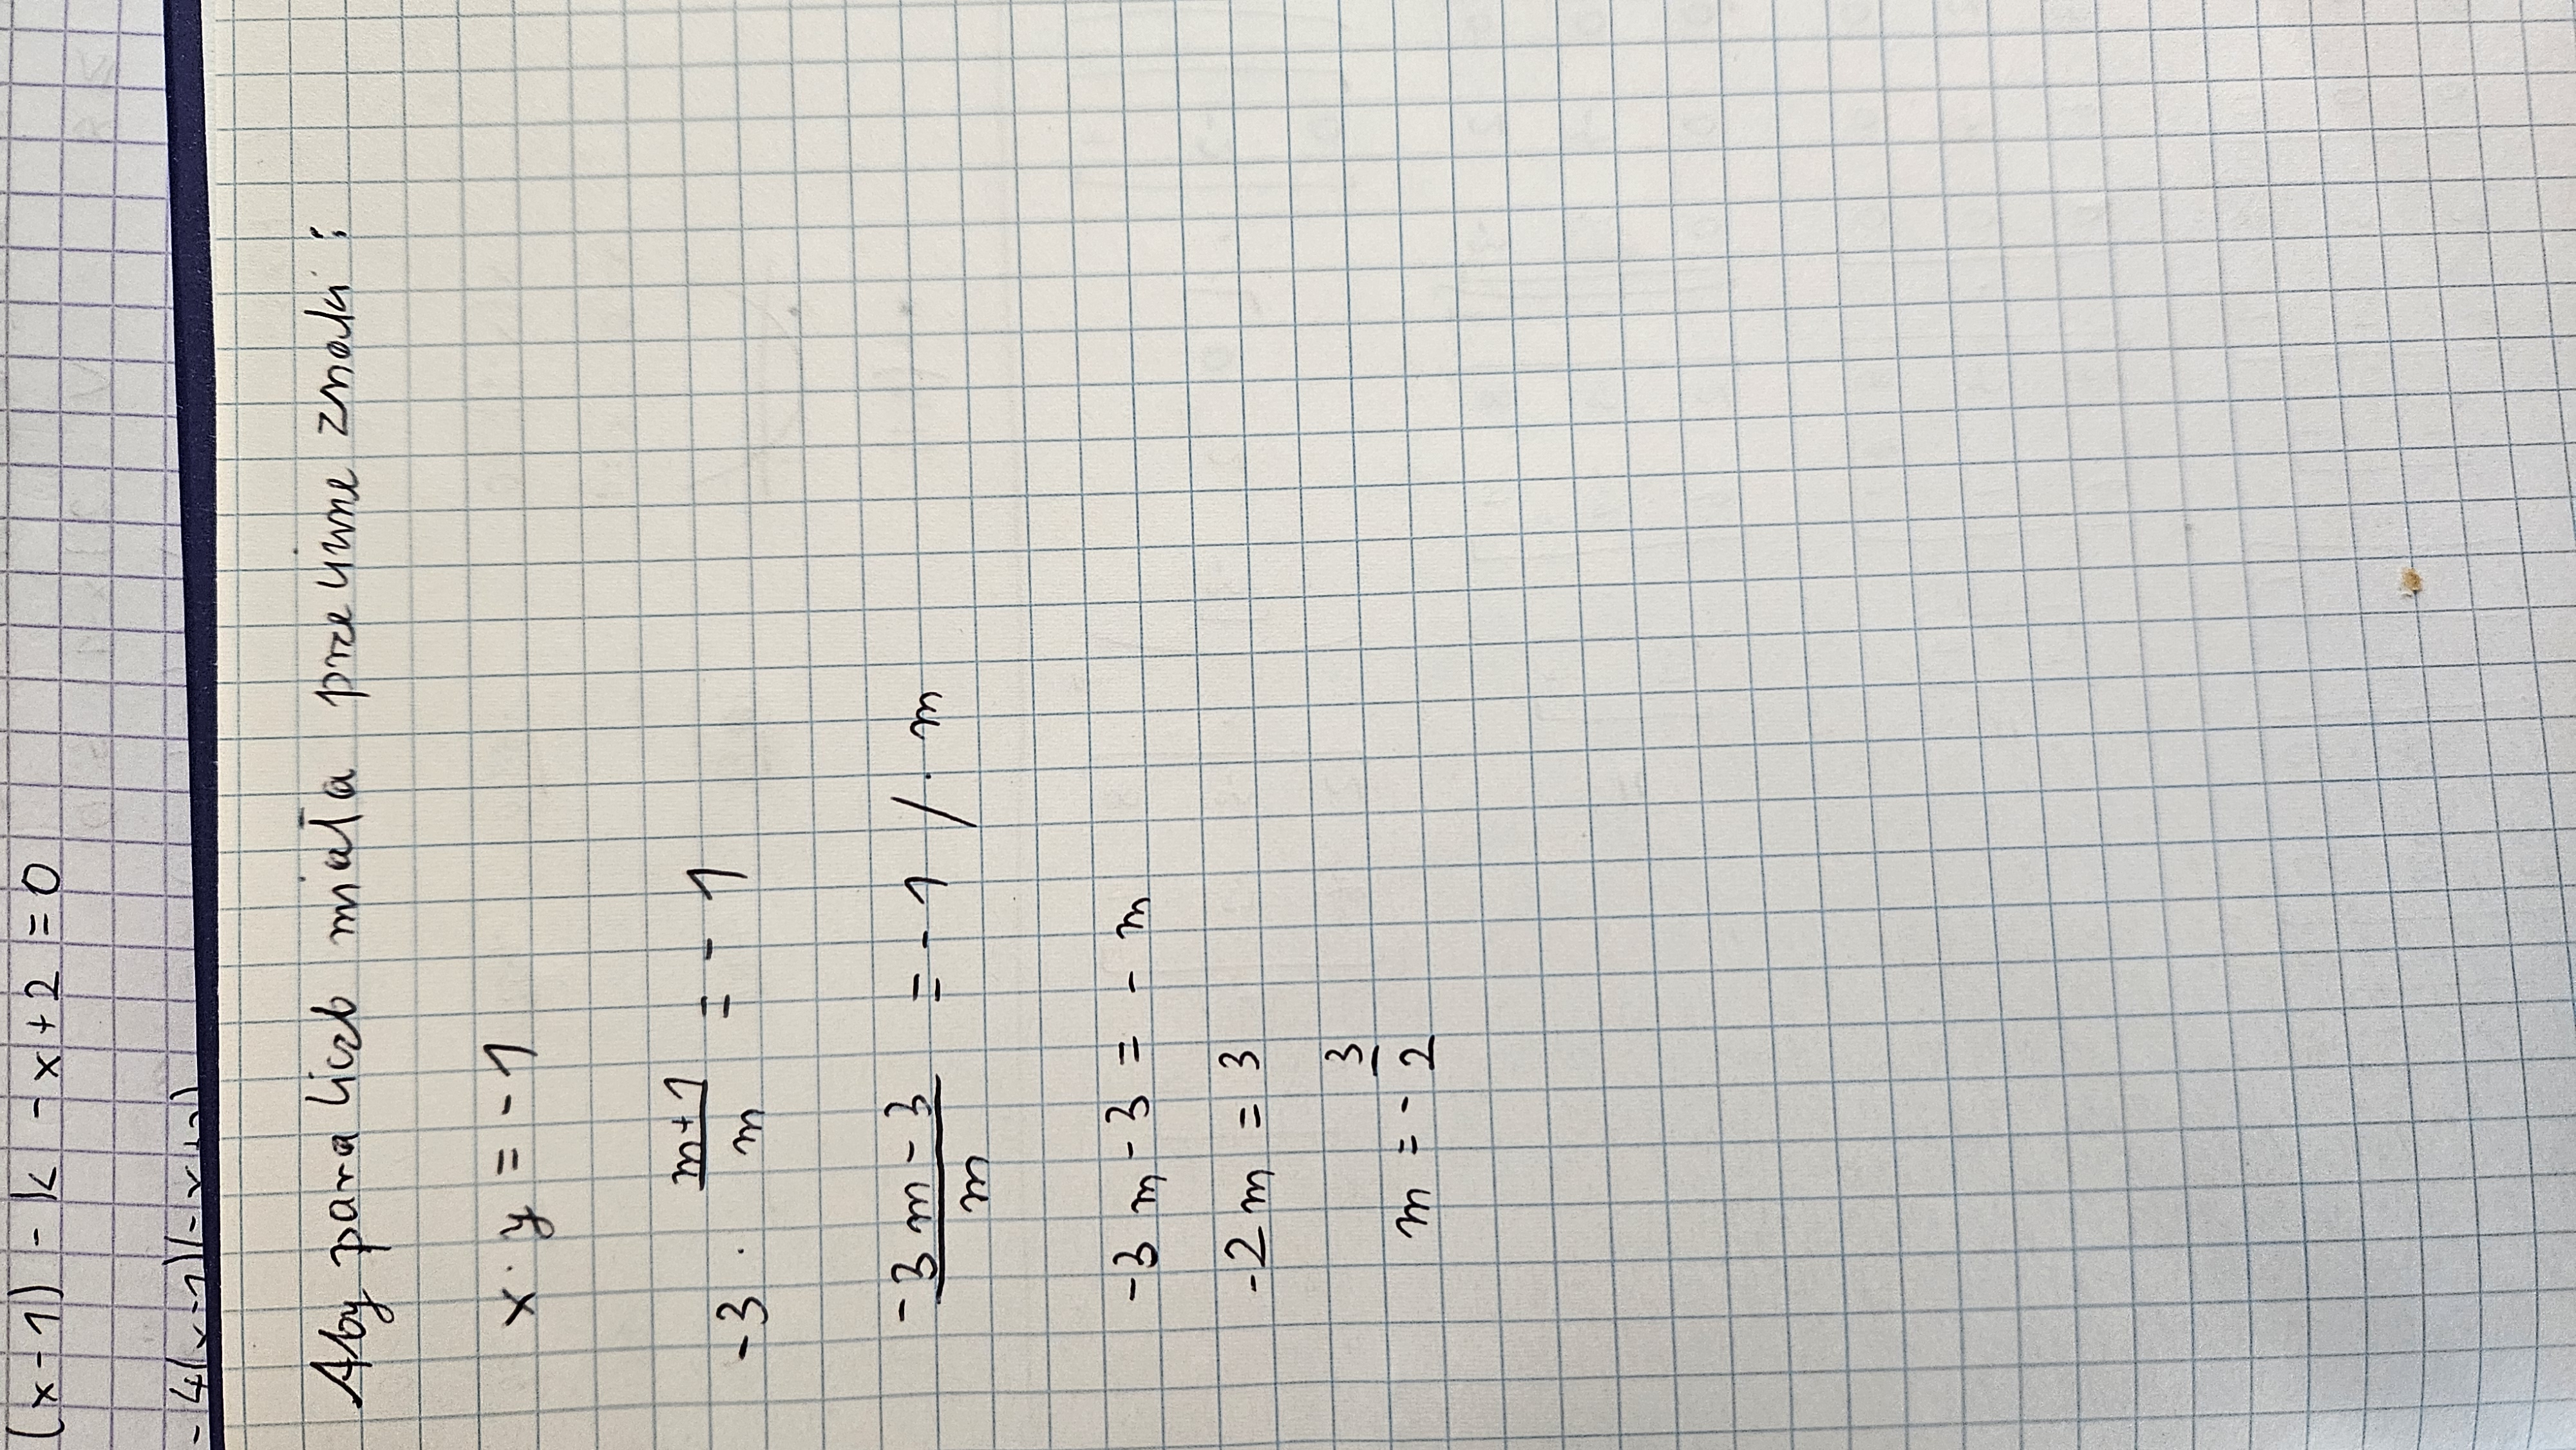 (x-1) - k - x+2 = 0
Aby para liczb miała przeciwne znaki:
x · y = -1
-3 · \frac{m+1}{m} = -1
\frac{-3m-3}{m} = -1 / · m
-3m-3 = -m
-2m = 3
m = -\frac{3}{2}